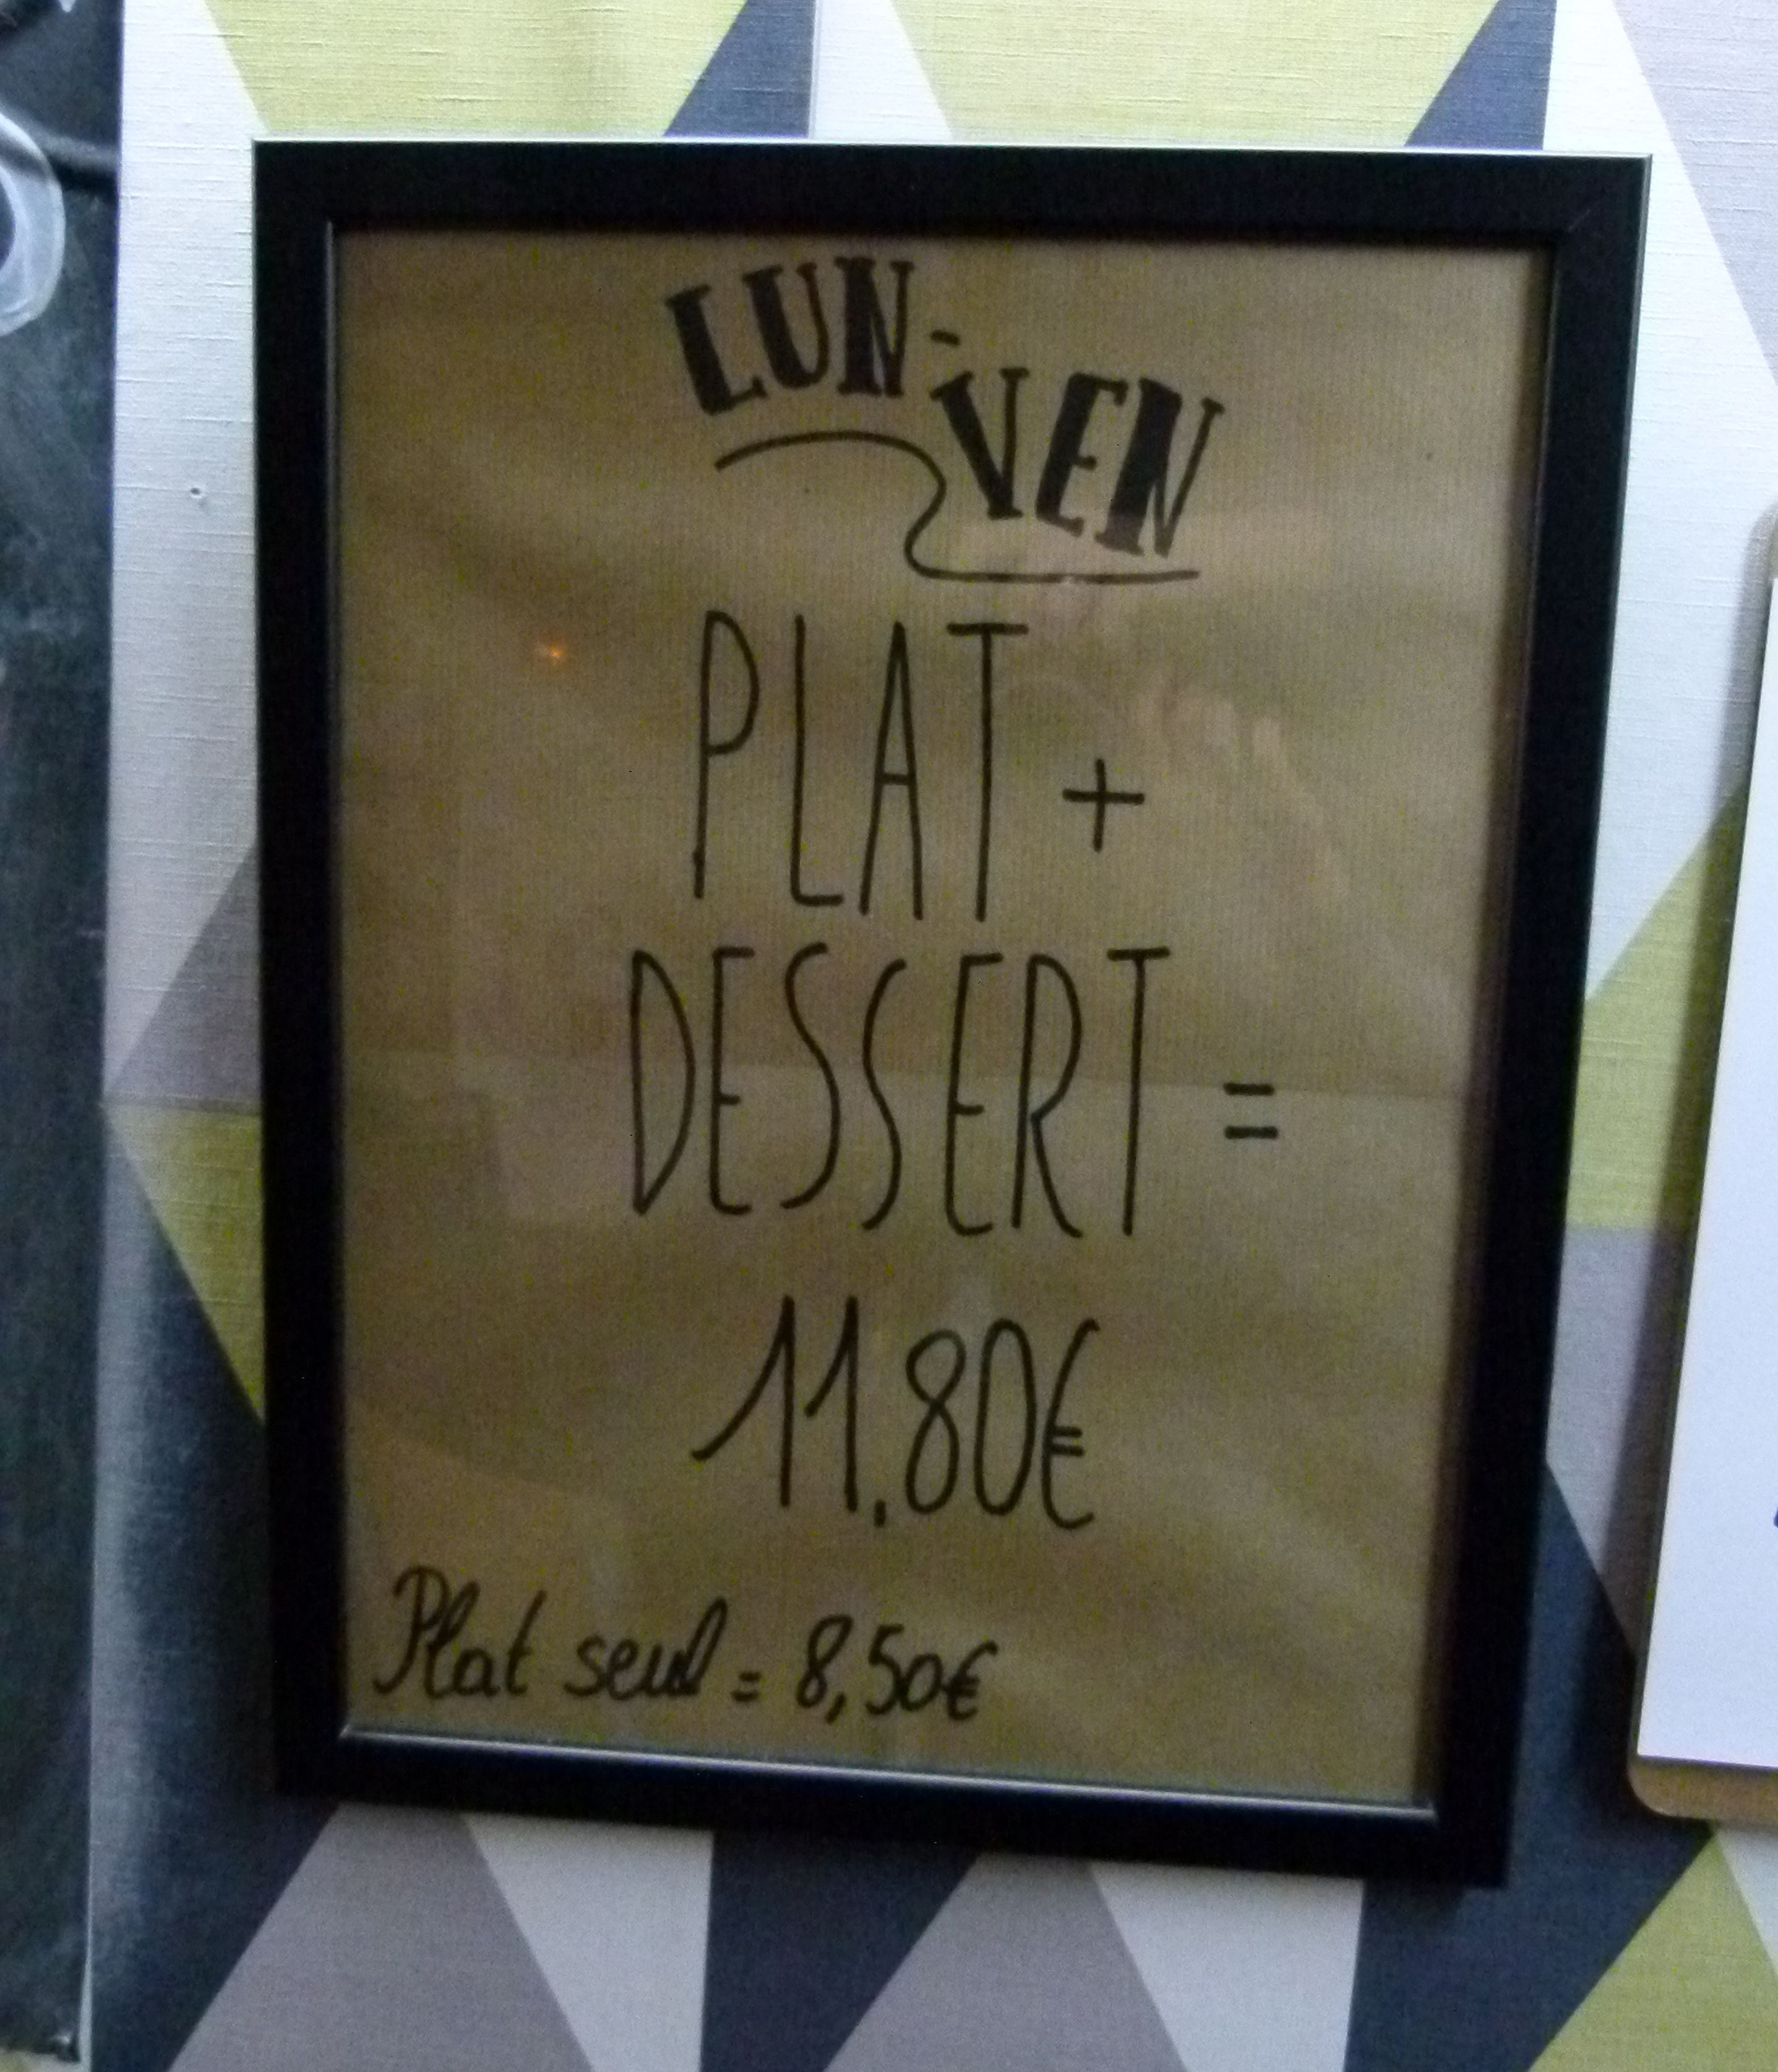 LUN-
VEN
PLAT +
DESSERT =
11.80€
Plat seul = 8,50€